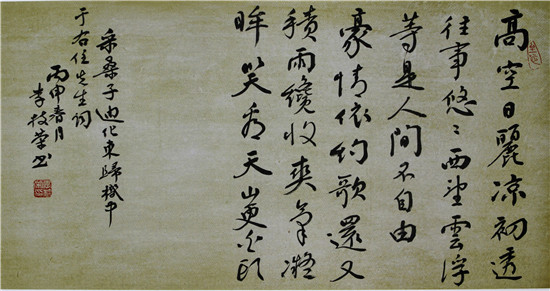 高空日麗凉初透
往事悠々西望雲浮
等是人間不自由
豪情依約歌還又
積雨纔收爽氣凝
眸笑看天山更白頭
采桑子迪化東歸機中
于右任先生詞
丙申春月
李枝荣书